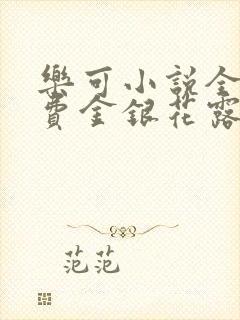 樂可小說全
費金銀花露
范范